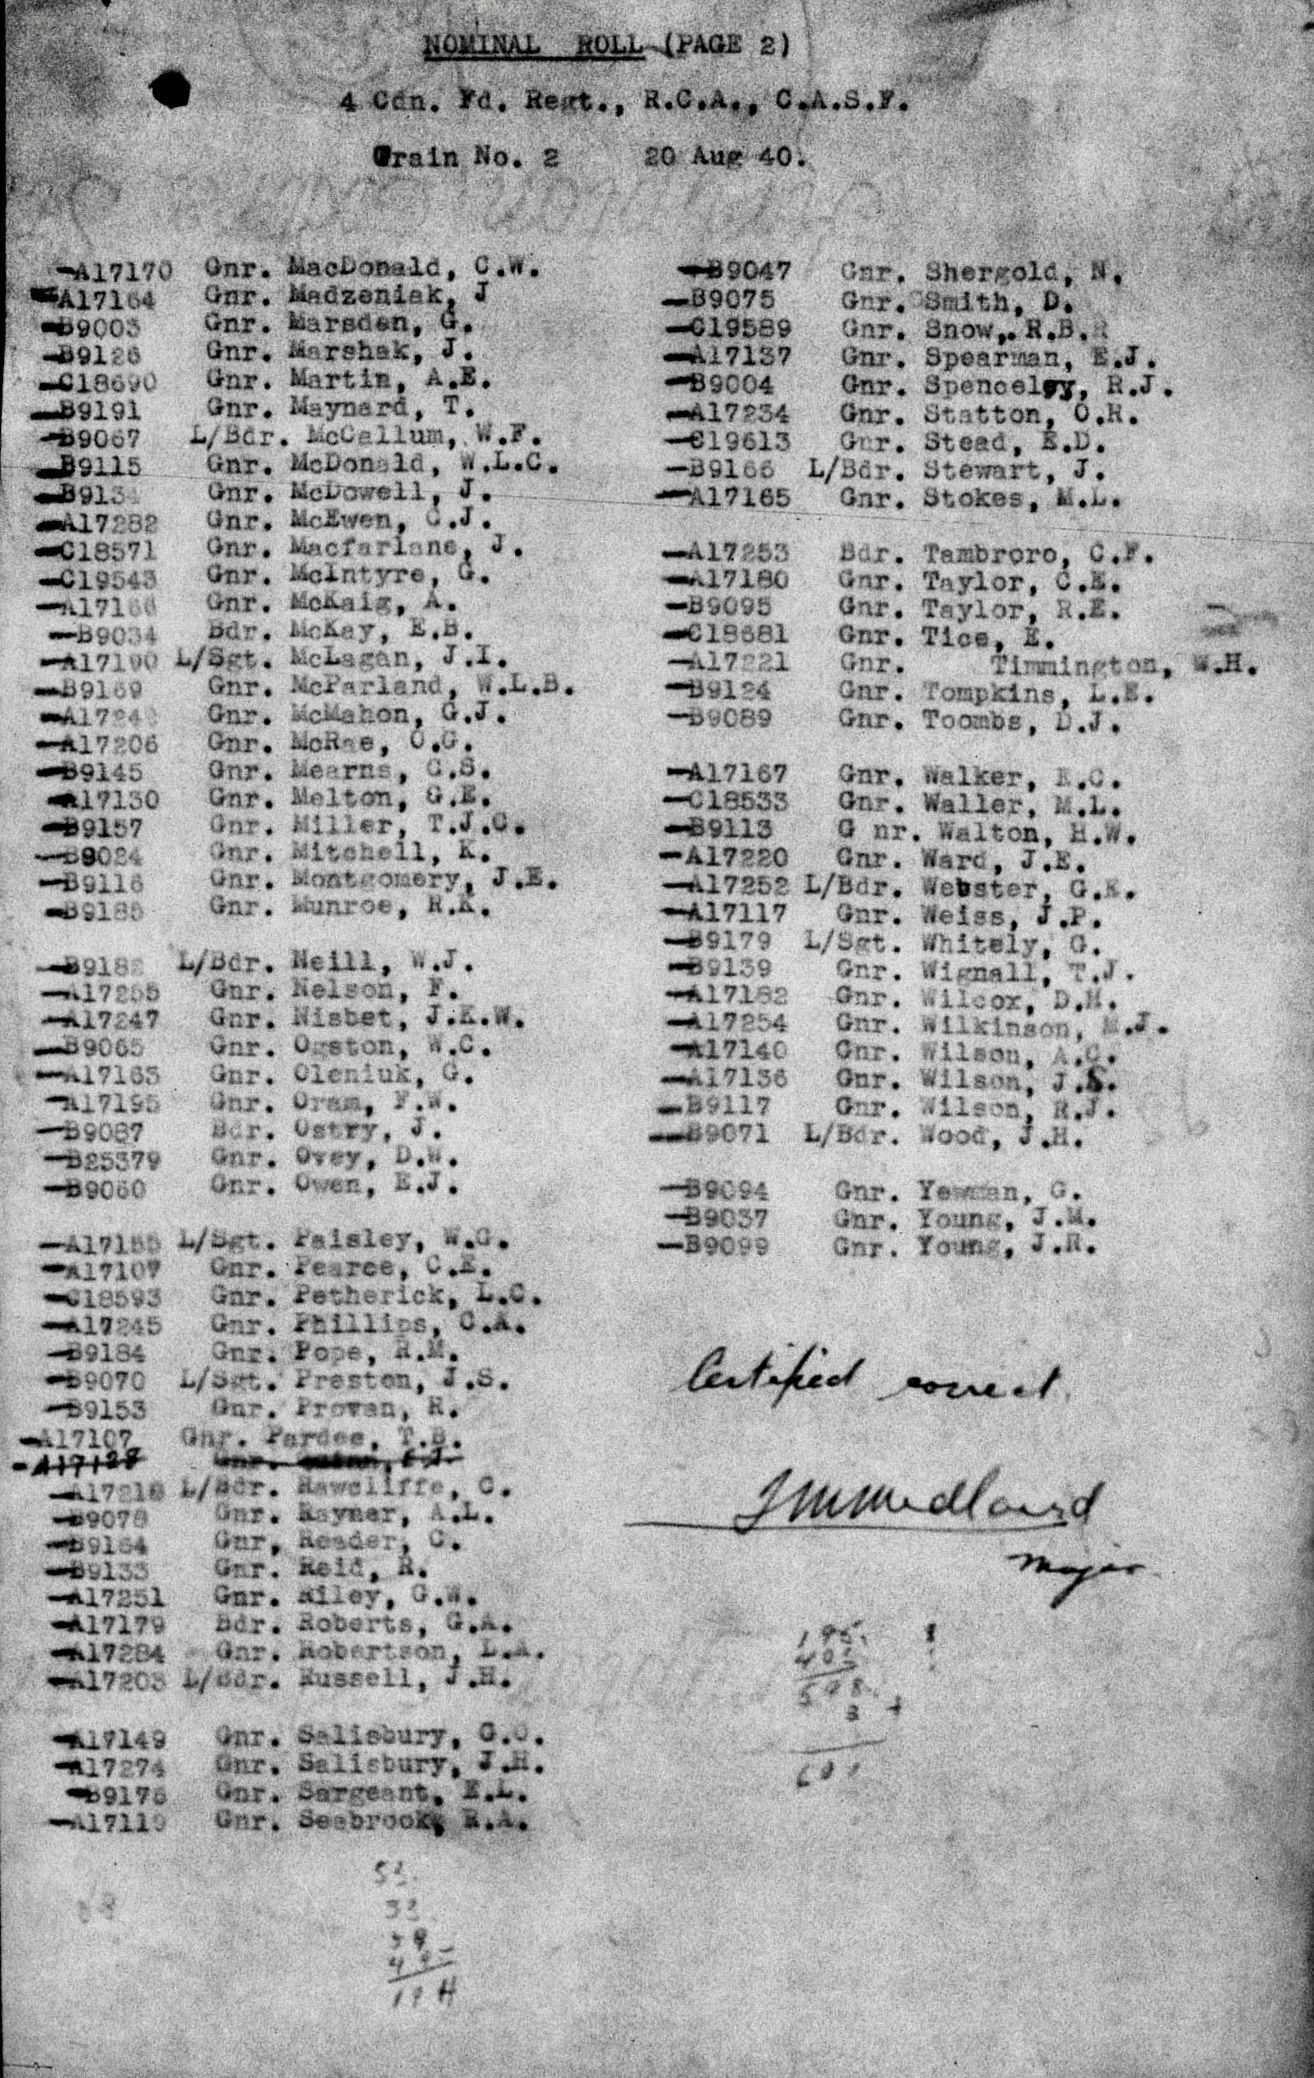 NOMINAL ROLL (PAGE 2)
4 Cdn. Fd. Regt., R.C.A., C.A.S.F.
Train No. 2 20 Aug 40.
A17170 Gnr. MacDonald, C.W.
A17164 Gnr. Madzeniak, J
B9003 Gnr. Marsden, G.
B9126 Gnr. Marshak, J.
C18690 Gnr. Martin, A.E.
B9191 Gnr. Maynard, T.
B9067 L/Bdr. McCallum, W.F.
B9115 Gnr. McDonald, W.L.C.
Gnr. McDowell, J.
A17282 Gnr. McEwen, C.J.
C18571 Gnr. Macfarlane, J.
C19543 Gnr. McIntyre, G.
Gnr. McKaig, A.
B9034 Bdr. McKay, E.B.
A17190 L/Sgt. McLagan, J.I.
B9169 Gnr. McParland, W.L.B.
Gnr. McMahon, G.J.
A17206 Gnr. McRae, O.G.
B9145 Gnr. Mearns, C.S.
A17130 Gnr. Melton, G.E.
B9157 Gnr. Miller, T.J.C.
B9024 Gnr. Mitchell, K.
B9116 Gnr. Montgomery, J.E.
B9185 Gnr. Munroe, R.K.
L/Bdr. Neill, W.J.
A17255 Gnr. Nelson, F.
A17247 Gnr. Nisbet, J.E.W.
B9065 Gnr. Ogston, W.C.
A17163 Gnr. Oleniuk, G.
A17195 Gnr. Oram, F.W.
B9087 Bdr. Ostry, J.
B25379 Gnr. Ovey, D.W.
B9060 Gnr. Owen, E.J.
A17155 L/Sgt. Paisley, W.G.
A17107 Gnr. Pearce, C.E.
C18593 Gnr. Petherick, L.C.
A17245 Gnr. Phillips, C.A.
B9184 Gnr. Pope, R.M.
B9070 L/Sgt. Preston, J.S.
B9153 Gnr. Provan, R.
A17107 Gnr. Pardee, T.B.
L/Bdr. Rawcliffe, C.
B9078 Gnr. Rayner, A.L.
B9164 Gnr, Reader, C.
B9133 Gnr. Reid, R.
A17251 Gnr. Riley, G.W.
A17179 Bdr. Roberts, G.A.
A17284 Gnr. Robertson, L.A.
A17203 L/Bdr. Russell, J.H.
A17149 Gnr. Salisbury, G.O.
A17274 Gnr. Salisbury, J.H.
B9176 Gnr. Sargeant, E.L.
A17119 Gnr. Seabrook, R.A.
B9047 Gnr. Shergold, N.
B9075 Gnr. Smith, D.
C19589 Gnr. Snow,. R.B.R
A17137 Gnr. Spearman, E.J.
B9004 Gnr. Spenceley, R.J.
A17234 Gnr. Statton, O.R.
C19613 Gnr. Stead, E.D.
B9166 L/Bdr. Stewart, J.
A17165 Gnr. Stokes, M.L.
A17253 Bdr. Tambroro, C.F.
A17180 Gnr. Taylor, C.E.
B9095 Gnr. Taylor, R.E.
C18681 Gnr. Tice, E.
A17221 Gnr. Timmington, W.H.
B9124 Gnr. Tompkins, L.E.
B9089 Gnr. Toombs, D.J.
A17167 Gnr. Walker, E.C.
C18533 Gnr. Waller, M.L.
B9113 G nr. Walton, H.W.
A17220 Gnr. Ward, J.E.
A17252 L/Bdr. Webster, G.E.
A17117 Gnr. Weiss, J.P.
B9179 L/Sgt. Whitely, G.
B9139 Gnr. Wignall, T.J.
A17182 Gnr. Wilcox, D.H.
A17254 Gnr. Wilkinson, M.J.
A17140 Gnr. Wilson, A.C.
A17136 Gnr. Wilson, J.S.
B9117 Gnr. Wilson, R.J.
B9071 L/Bdr. Wood, J.H.
B9094 Gnr. Yewman, G.
B9037 Gnr. Young, J.M.
B9099 Gnr. Young, J.R.
Certified correct
Major